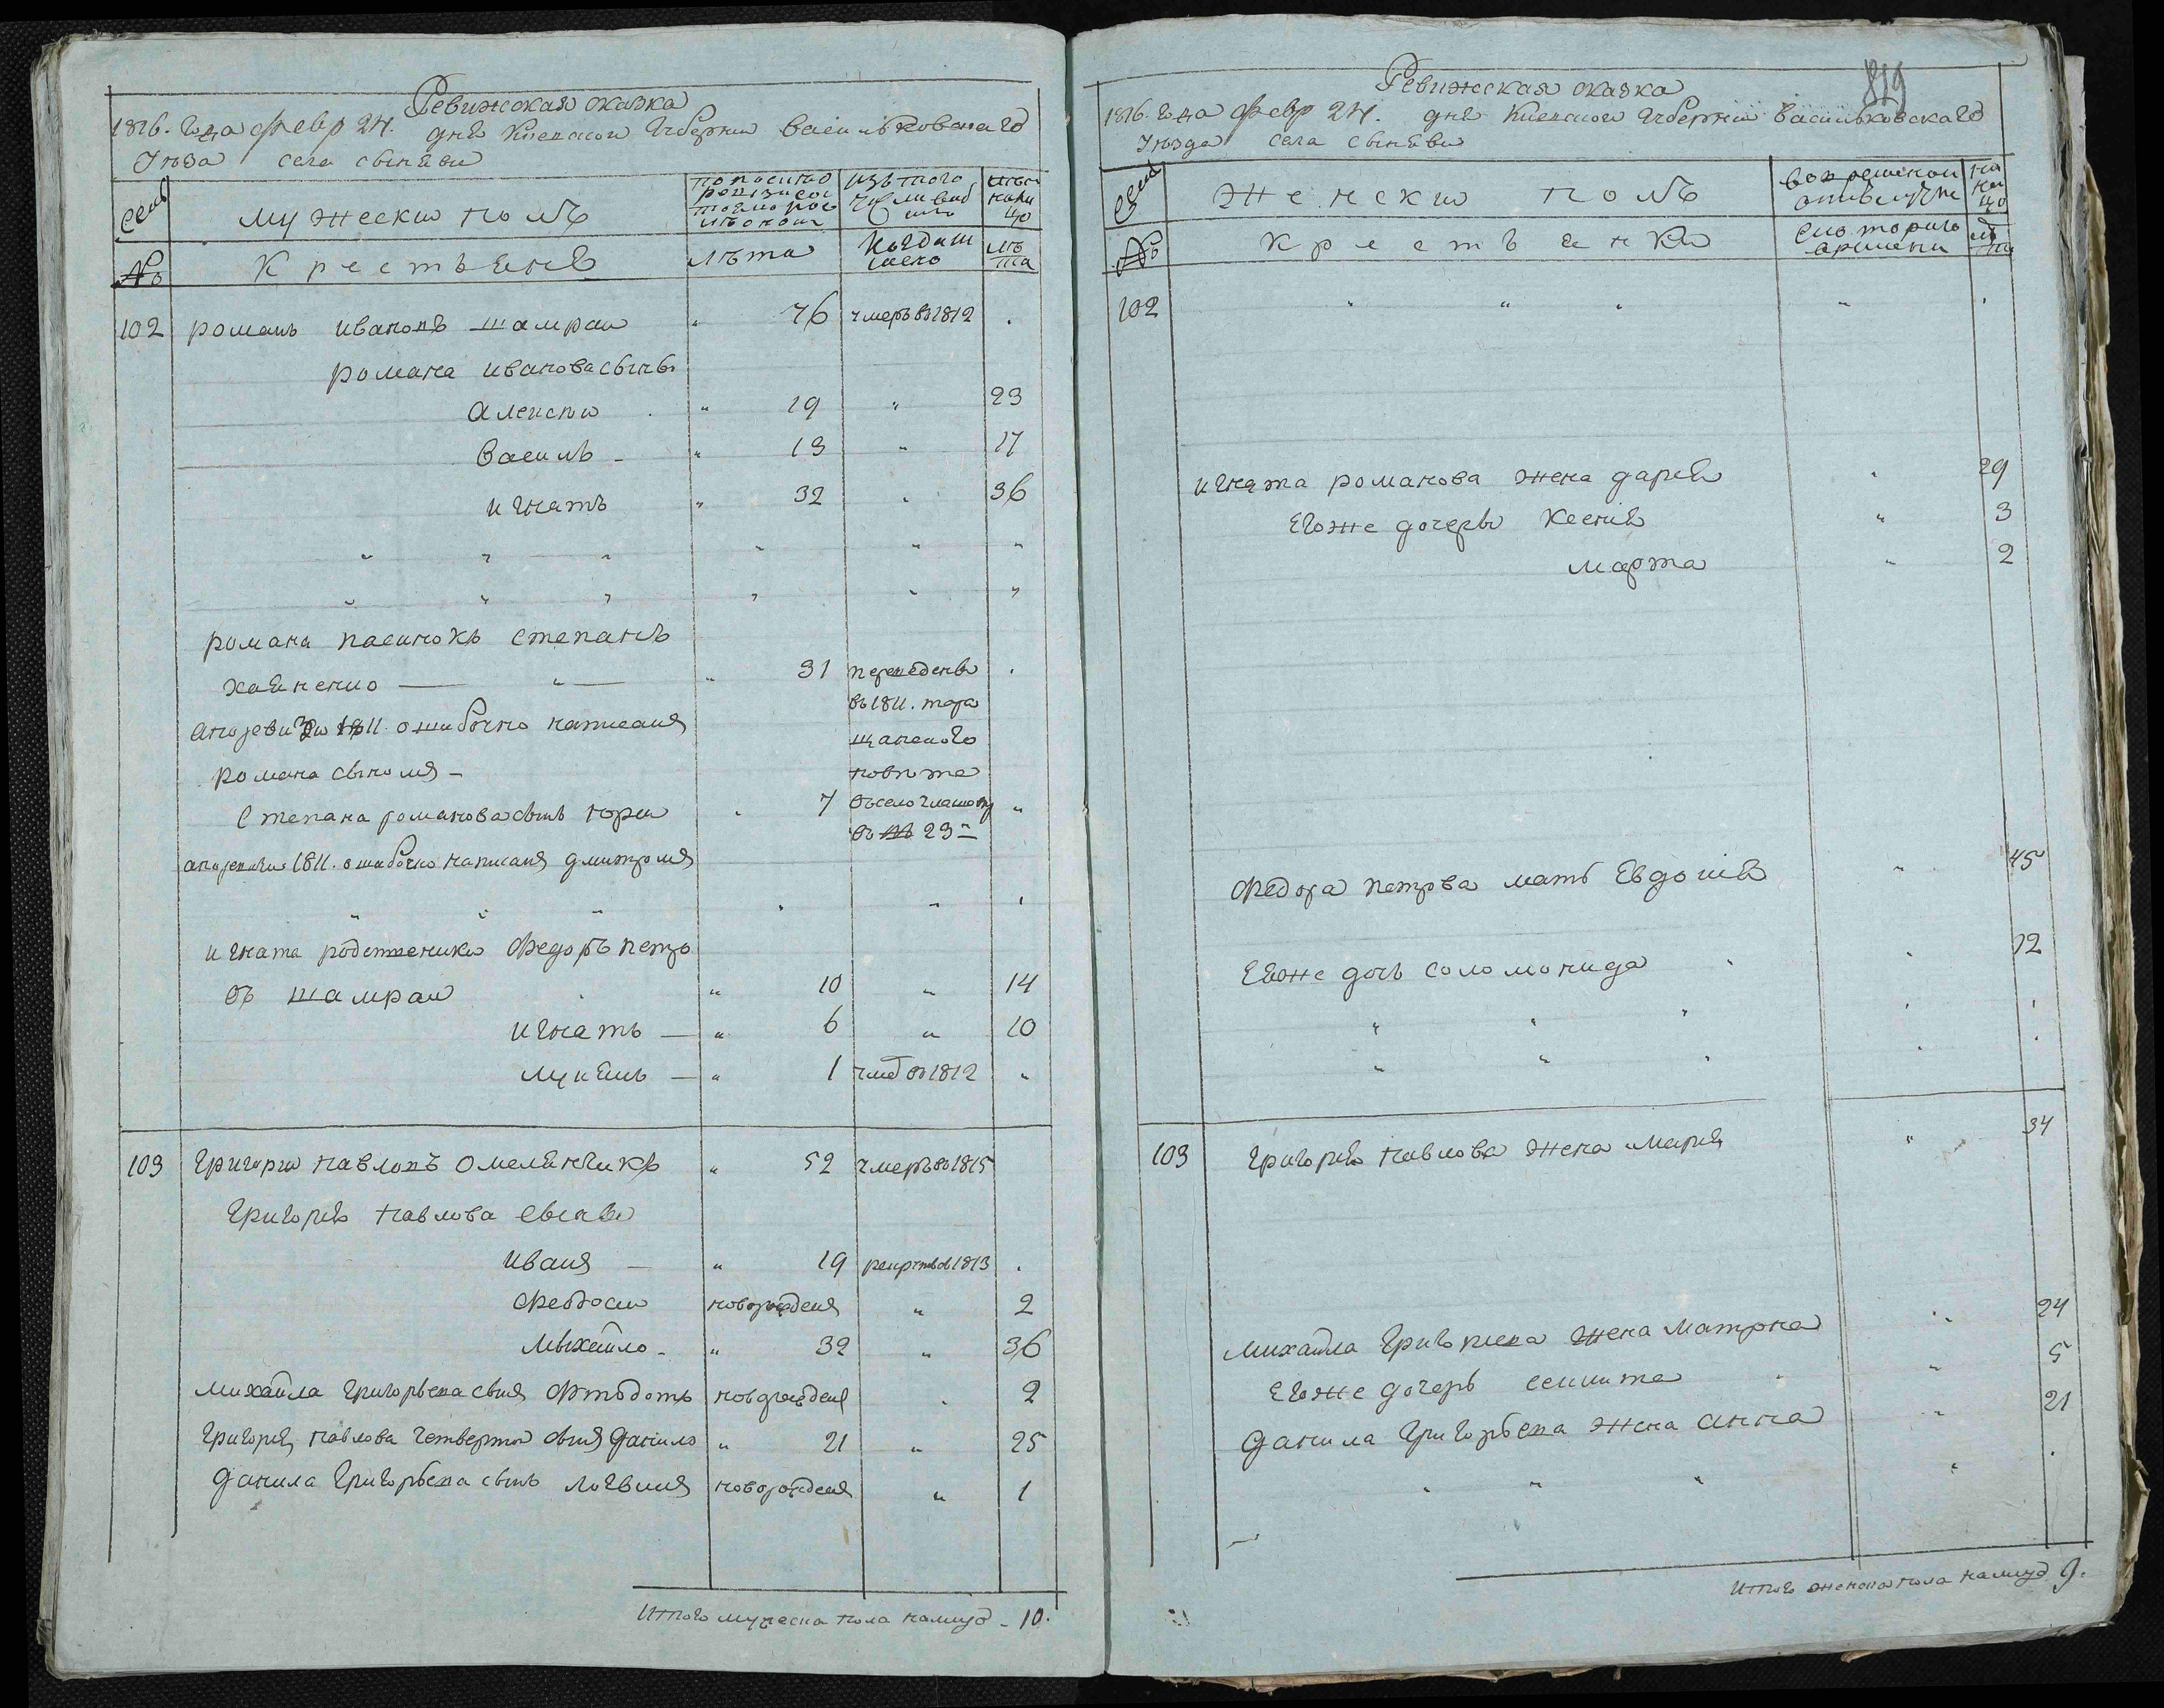 Ревижская сказка
1816. года февр 24. дня Киевской Губернии Васильковскаго
Уезда села сыняви
семи
мужески полъ
по последней ревизии состояло
изъ того числа выбыло
ныне налицо
№
Крестьяне
лета
Когда именно
лета
102 романъ ивановъ шамраи " 76 умеръ въ 1812 .
романа иванова сыны
Алексеи " 19 " 23
василь " 13 " 17
игнатъ " 32 " 36
" " " " " "
" " " " " "
романа пасинокъ степанъ
хаяненко " 31 переведены .
въ 1811. тара
а по ревизии 1811. ошибочно написанъ
щанского
романа сыномъ - повита
степана романова сынъ юреи " 7 въ село
въ 23
а по ревизии 1811. ошибочно написанъ дмитромъ
" " " " " "
игната родственики федоръ петро
въ шамраи " 10 " 14
игнатъ " 6 " 10
лукьянъ " 1 уме въ 1812 "
103 григореи павловъ омелянчикъ " 52 умеръ въ 1815
григорья павлова сынавья
иванъ " 19 рекрутъ въ 1813 .
федосеи новорожденъ " 2
мыхаило " 32 " 36
михаила григорьева сынъ федотъ новорожденъ " 2
григорея павлова четвертои сынъ данило " 21 " 25
данила григорьева сынъ логвинъ новорожденъ " 1
Итого мужеска пола налицо - 10.
819
Ревижская сказка
1816. года февр 24. дня Киевской Губернии Васильковскаго
Уезда села сыняви
семи
женски полъ
во временной отлучке
на лицо
№
крестьянки
лета
102 " " " " .
игната романова жена дарья " 29
Егоже дочеры ксения " 3
марта " 2
федора петрова мать Евдокия " 45
Евоже дочь соломонида " 12
" " " " "
" " " " "
103 григорья павлова жена марья " 34
михаила григорьева жена матрона " 24
Егоже дочерь " 5
данила григорьева жена анна " 21
" " " " .
Итого женска пола налицо 9.